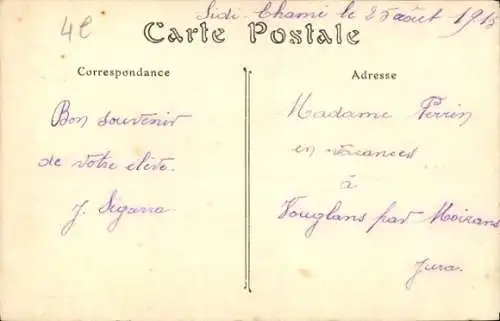 4E
Sidi-Chami le 25 août 1915
Carte Postale
Correspondance
Adresse
Bon souvenir
de votre elève.
J. Sigarra
Madame Perrin
en vacances
à
Vouglans par Moirans
Jura.